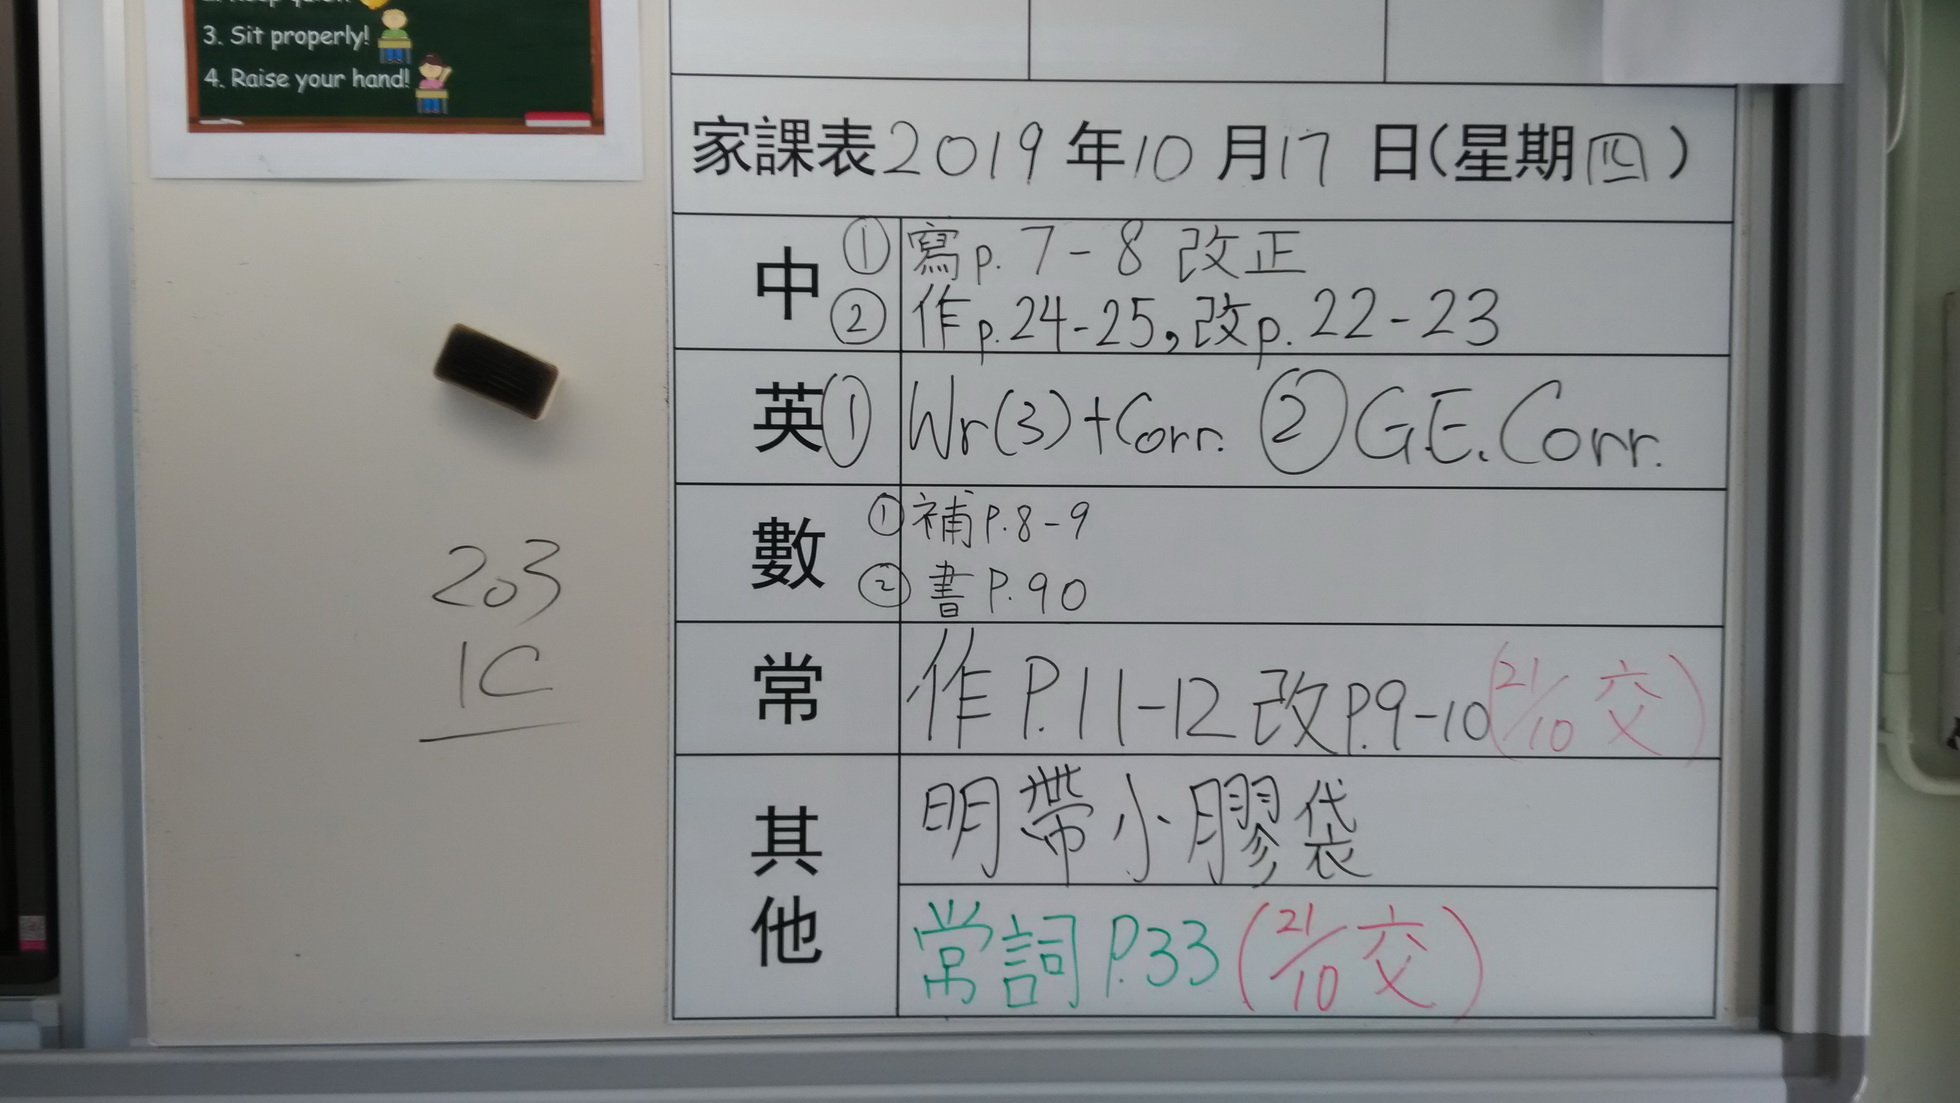 3. Sit properly!
4. Raise your hand!
家課表2019年10月17日(星期四)
中
① 寫p.7-8 改正
② 作p.24-25,改p.22-23
英 ① Wr(3)+Corr. ② G.E.Corr.
數
① 補P.8-9
② 書P.90
常 作P.11-12 改P.9-10(21/10交)
其他
明帶小膠袋
常詞P.33(21/10交)
203
1C